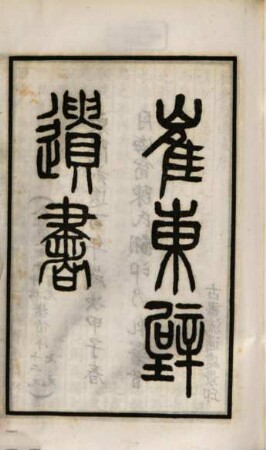 崔東壁
遺書